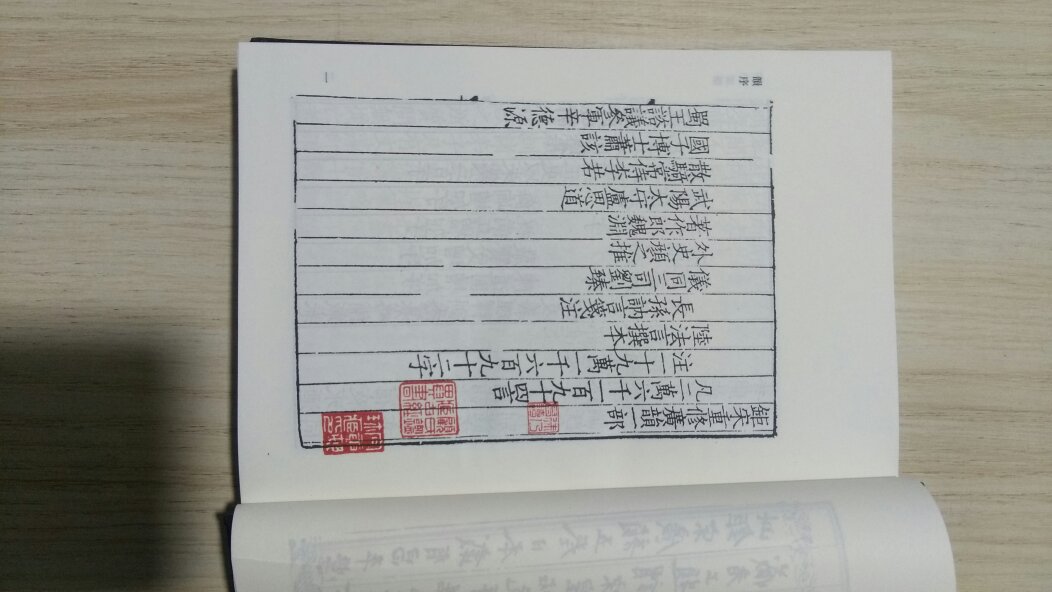 韻序
鉅宋重修廣韻一部
凡二萬六千一百九十四言
注一十九萬一千六百九十二字
陸法言撰本
長孫訥言箋注
儀同三司劉臻
外史顏之推
著作郎魏淵
武陽太守盧思道
散騎常侍李若
國子博士蕭該
蜀王諮議參軍辛德源
一